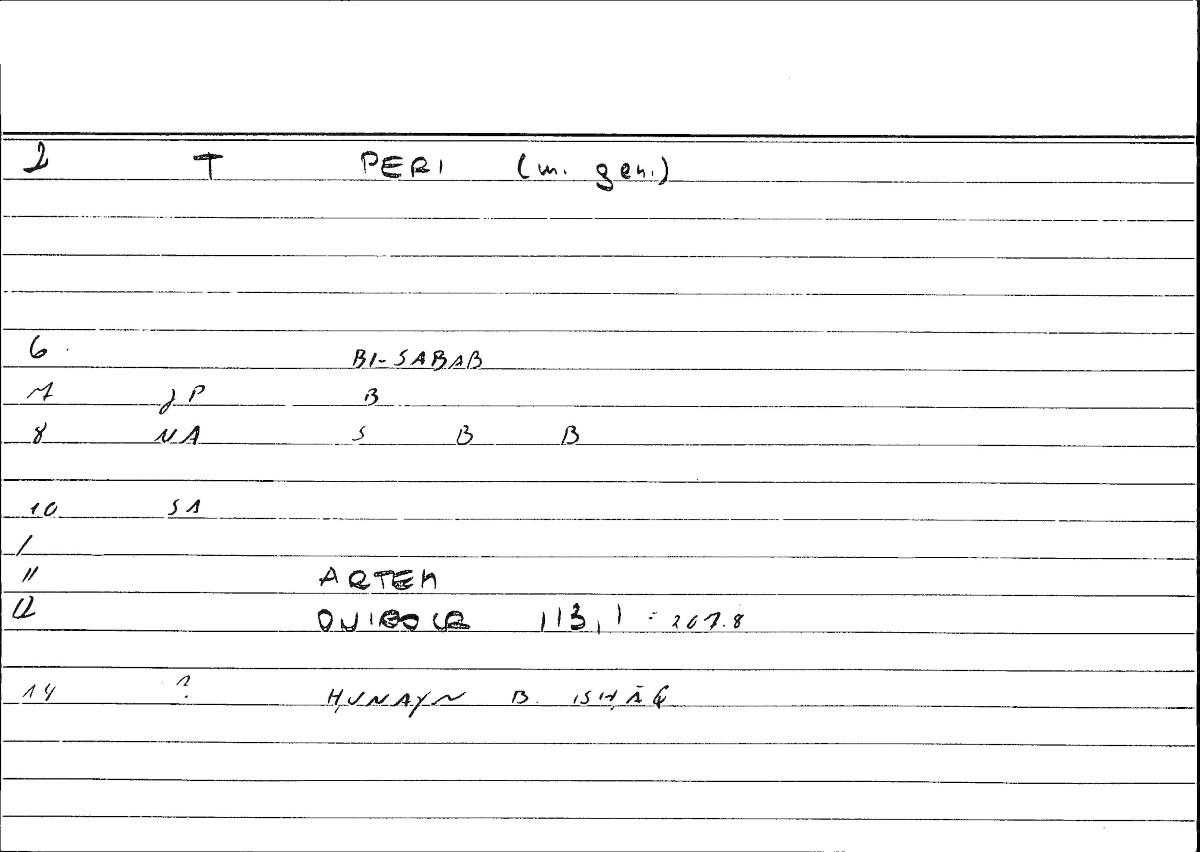 2 T PERI (m. gen.)
6 BI-SABAB
7 JP B
8 NA S B B
10 SA
/
11 ARTEM
12 113,1 = 207.8
14 ? ḤUNAYN B. ISḤĀQ